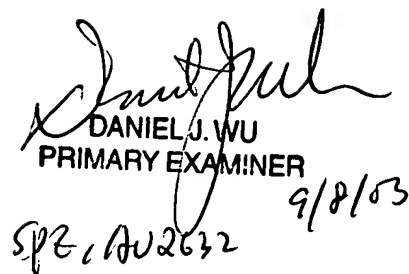 DANIEL J. WU
PRIMARY EXAMINER
9/8/03
SPE, AU2632